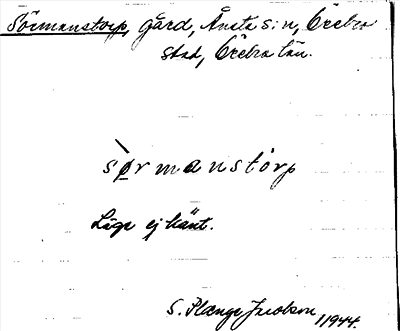 Sörmanstorp, gård, Ånsta s:n, Örebro
stad, Örebro län.
sørmanstòrp
Läge ej känt.
S. Plænge Jacobson 1/1944.